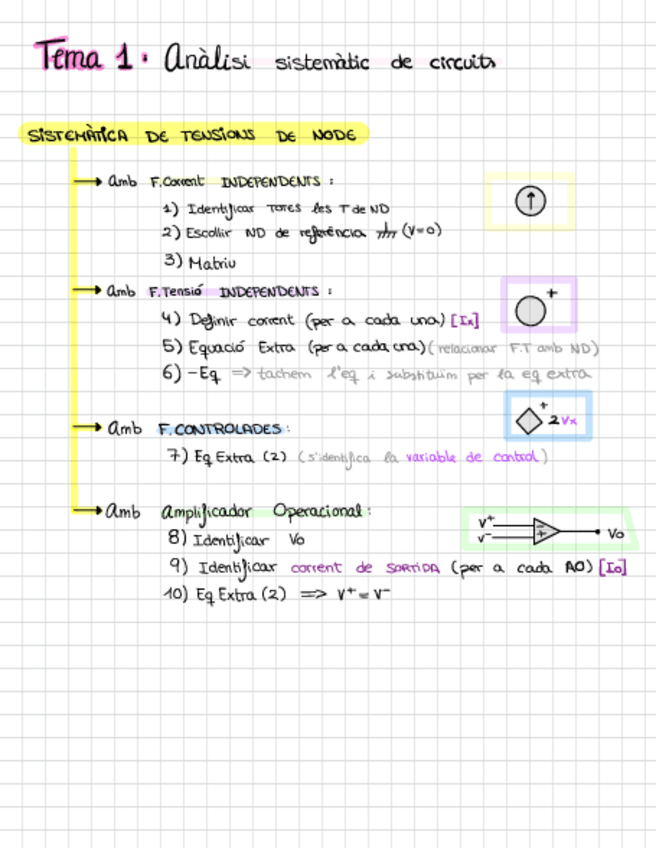 Tema 1: Anàlisi sistemàtic de circuits
SISTEMÀTICA DE TENSIONS DE NODE
→ Amb F.Corrent INDEPENDENTS :
1) Identificar TOTES les T de ND
2) Escollir ND de referència (V=0)
3) Matriu
→ Amb F.Tensió INDEPENDENTS :
+
4) Definir corrent (per a cada una) [Ix]
5) Equació Extra (per a cada una) (relacionar F.T amb ND)
6) -Eq => tachem l'eq i substituim per la eq extra
→ Amb F.CONTROLADES:
+ 2Vx
7) Eq Extra (2) (s'identifica la variable de control)
→ Amb Amplificador Operacional:
V+
V-
- + Vo
8) Identificar Vo
9) Identificar corrent de SORTIDA (per a cada AO) [Io]
10) Eq Extra (2) => V+ = V-